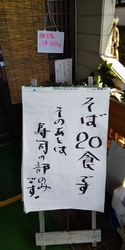 そば20食です
そのあとは
寿司の部のみ
です!